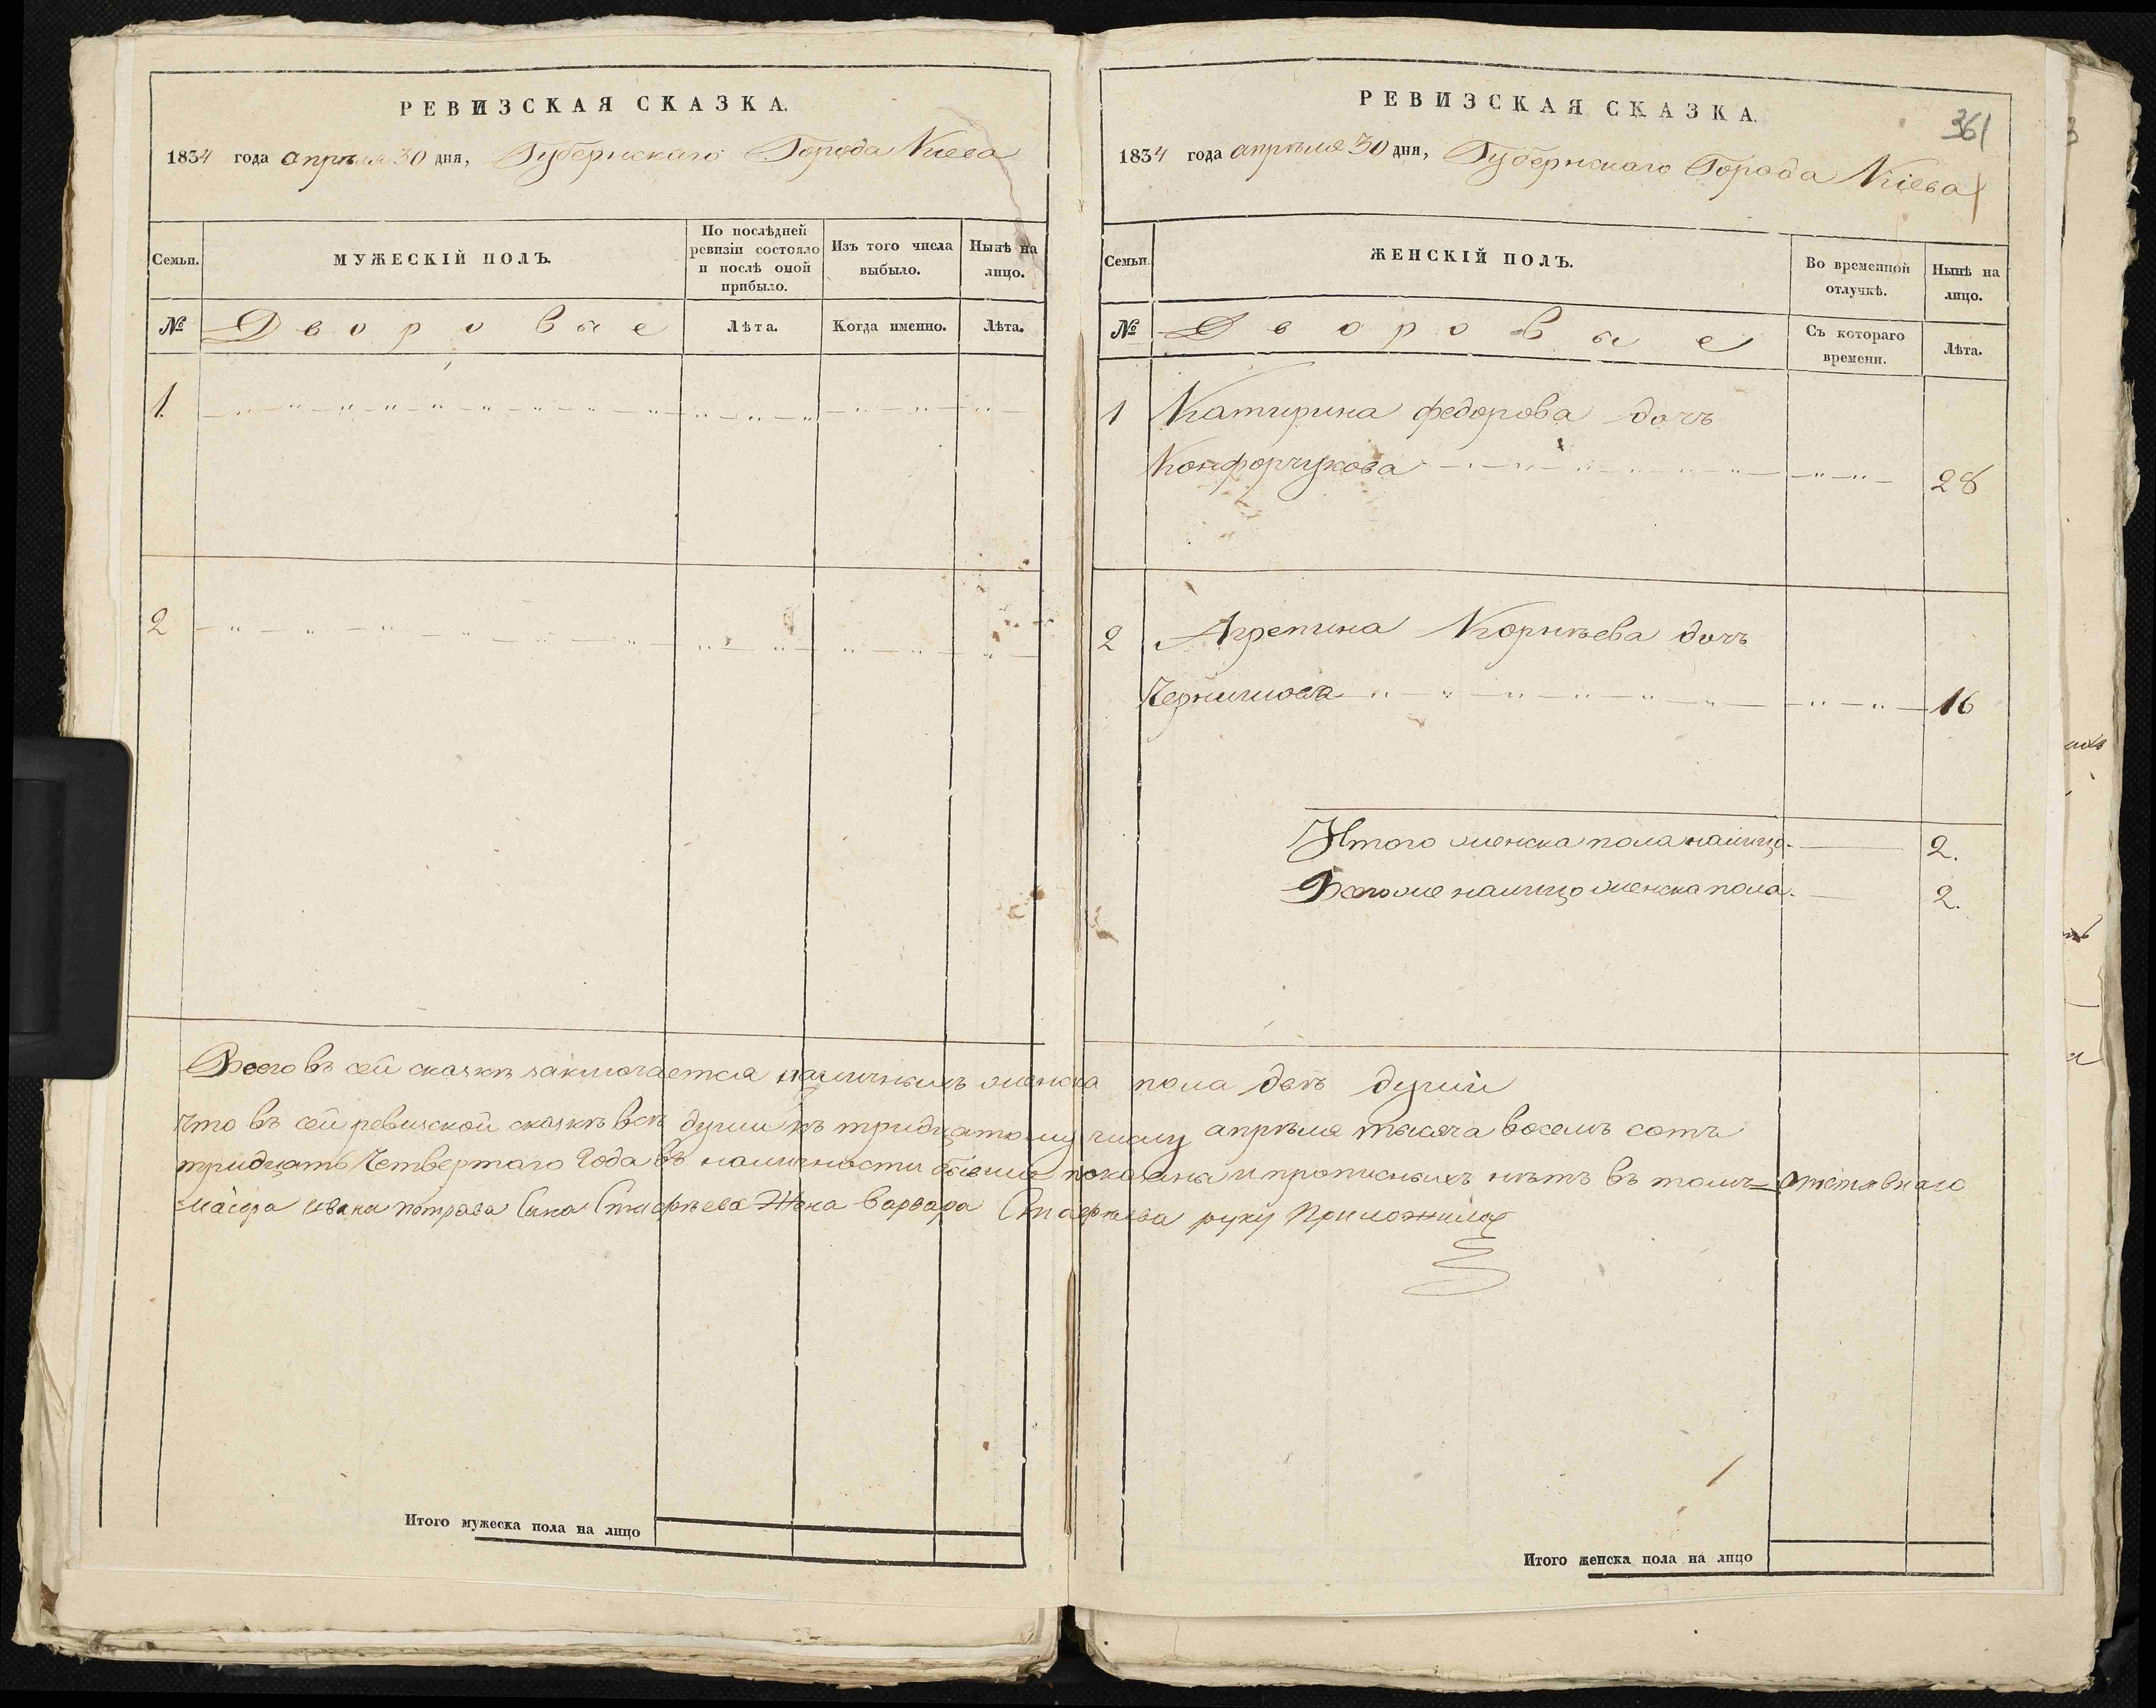 РЕВИЗСКАЯ СКАЗКА.
1834 года апрѣля 30 дня, Губернскаго Города Кіева
Семьи.
МУЖЕСКІЙ ПОЛЪ.
По послѣдней
ревизіи состояло
и послѣ оной
прибыло.
Изъ того числа
выбыло.
Нынѣ на
лицо.
№
Дворовые
Лѣта.
Когда именно.
Лѣта.
1.
2
РЕВИЗСКАЯ СКАЗКА.
361
1834 года апрѣля 30 дня, Губернскаго Города Кіева
Семьи.
ЖЕНСКІЙ ПОЛЪ.
Во временной
отлучкѣ.
Нынѣ на
лицо.
№
Дворовые
Съ котораго
времени.
Лѣта.
1 Катирина федорова дочь
Конфорчукова 28
2 Агрепина Корнѣева дочь
16
Итого женска пола налицо 2.
Всего же налицо женска пола 2.
Всего въ сей сказкѣ заключается наличныхъ женска пола двѣ души
что въ сей ревизской сказкѣ всѣ души къ тридцатому числу апрѣля тысяча восемь сотъ
тридцать Четвертаго Года въ наличности бывшіе показаны и прописныхъ нѣтъ въ томъ
маіора ивана петрова Сына Жена варвара руку Приложила
Итого мужеска пола на лицо
Итого женска пола на лицо